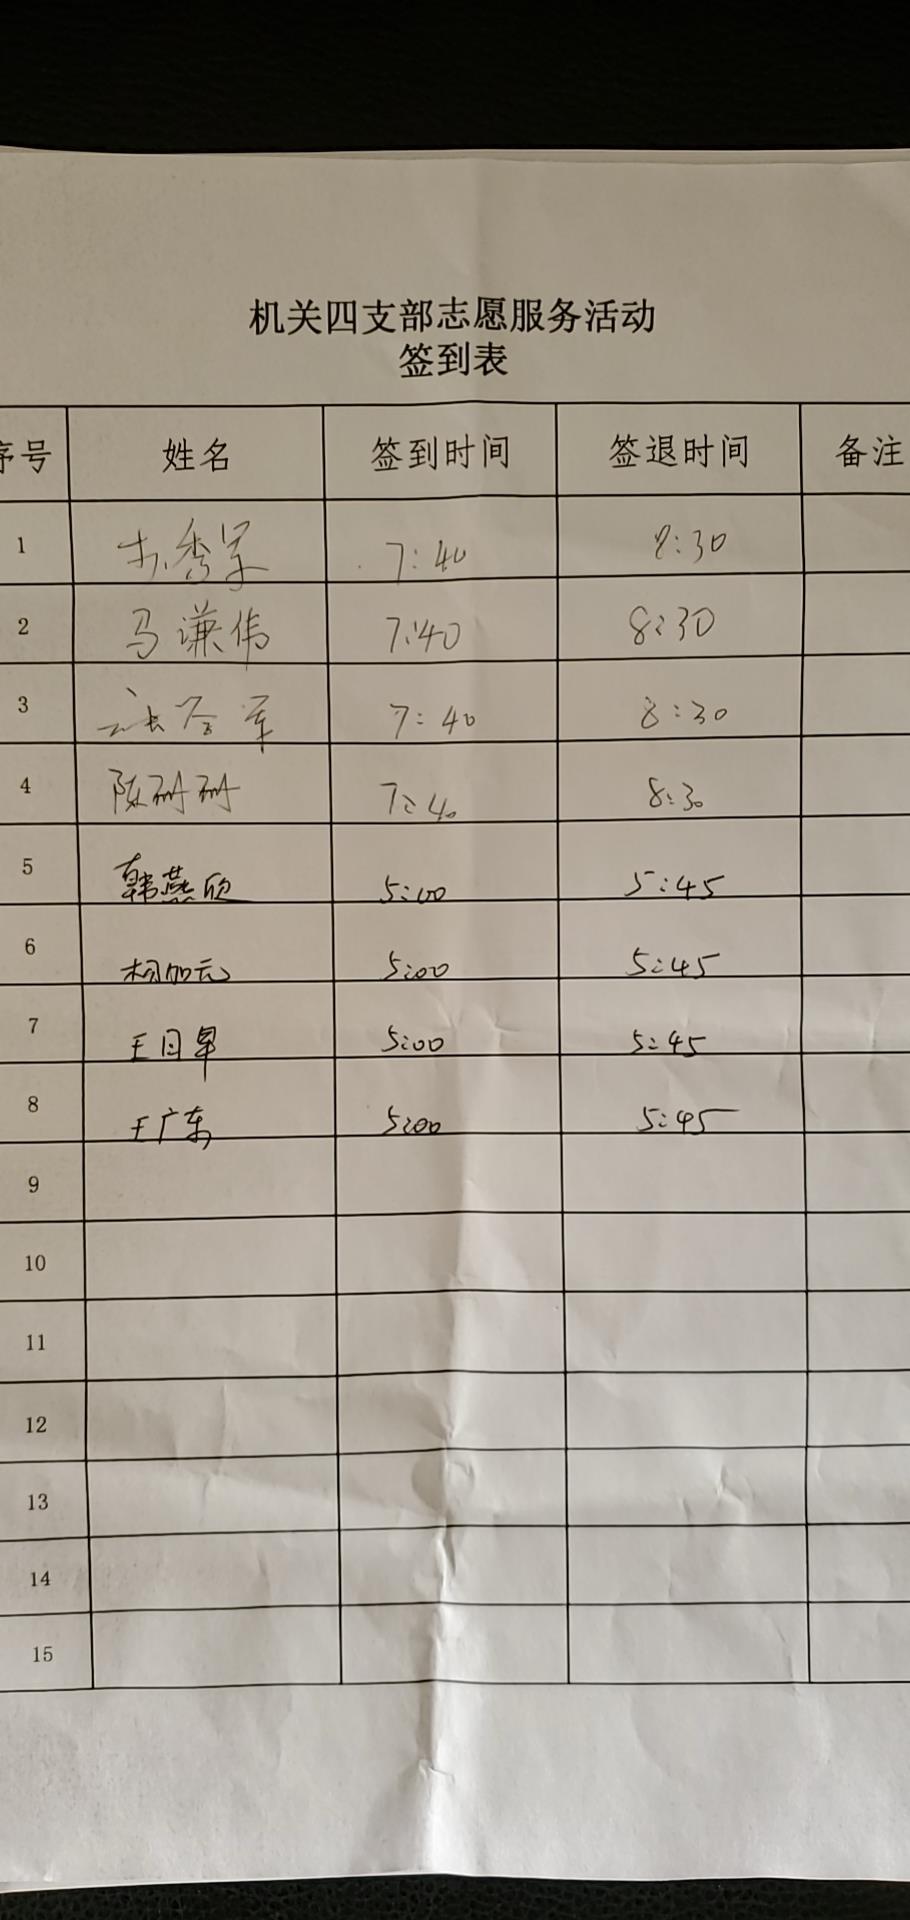 机关四支部志愿服务活动
签到表
序号 姓名 签到时间 签退时间 备注
1 7:40 8:30
2 马谦伟 7:40 8:30
3 7:40 8:30
4 陈树树 7:40 8:30
5 韩燕欣 5:00 5:45
6 杨加元 5:00 5:45
7 王日早 5:00 5:45
8 王广东 5:00 5:45
9
10
11
12
13
14
15